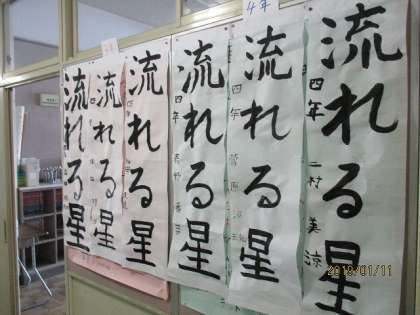 4年
流れる星
四年 二村 美涼
流れる星
四年 菅原
流れる星
四年
流れる星
四年
流れる星
流れる星
2019/01/11